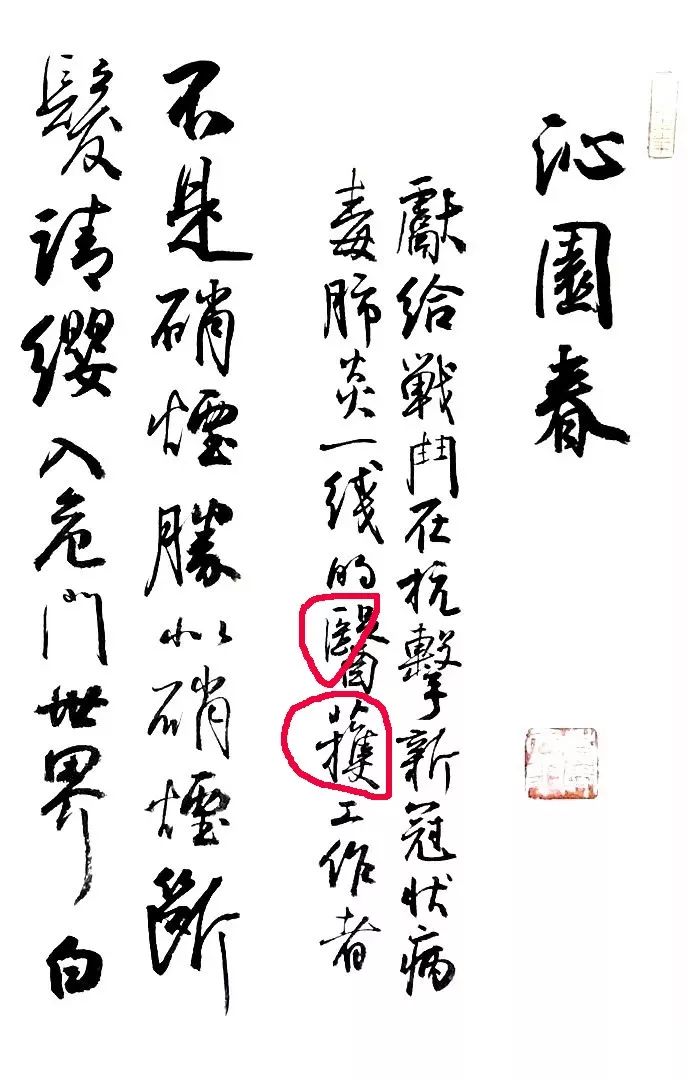 沁園春
獻給戰鬥在抗擊新冠狀病
毒肺炎一线的醫獲工作者
不是硝煙勝似硝煙斷
髮請纓入危門世界白